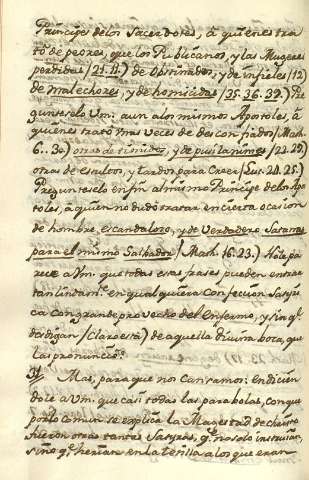 Principes delos Sacerdotes, à quienes tra
tò de peores, que los Publicanos, y las Mugeres
perdidas (21.31.) de Obstinados, y de infieles (12)
de Malechores, y de homicidas (35. 36. 39.) Pre
gunteselo Vm. aun alos mismos Apostoles, à
quienes tratò unas veces de desconfiados (Math.
6. 30.) otras de timidos, y de pusilanimes
otras de estultos, y tardos para Creer (Luc. 24. 25.)
Pregunteselo en fin al mismo Principe delos Apos
toles, à quien no dudò tratar en cierta ocasion
de hombre, escandaloso, y de Verdadero Satanas
para el mismo Salbador (Math. 16. 23.) No le pa
rece a Vm. que todas estas frases pueden entrar
tan lindam.te en qualquiera Confeccion Satyri
ca con grande provecho del Enfermo, y sin q.e
desdigan (Claro està) de aquella divina boca, que
las pronunciò?
31 Mas, para que nos Cansamos: en dicien
dole a Vm. que casi todas las parabolas, con que
por lo comun se explica la Magestad de Christo
fueron otras tantas Satyras, q.e no solo instruian,
sino q.e herian en la tetilla a los que eran